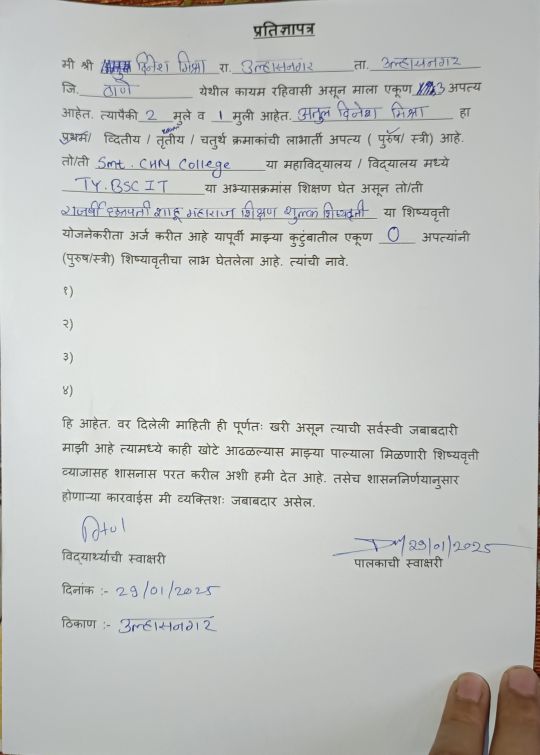 प्रतिज्ञापत्र
मी श्री दिनेश मिश्रा रा. उल्हासनगर ता. उल्हासनगर
जि. ठाणे येथील कायम रहिवासी असून माला एकूण 3 अपत्य
आहेत. त्यापैकी 2 मुले व 1 मुली आहेत. अतुल दिनेश मिश्रा हा
प्रथम/ व्दितीय / तृतीय / चतुर्थ क्रमाकांची लाभार्ती अपत्य ( पुरुष/ स्त्री) आहे.
तो/ती Smt. CHM College या महाविद्यालय / विद्यालय मध्ये
TY.BSC IT या अभ्यासक्रमांस शिक्षण घेत असून तो/ती
राजर्षी छत्रपती शाहू महाराज शिक्षण शुल्क शिष्यवृत्ती या शिष्यवृत्ती
योजनेकरीता अर्ज करीत आहे यापूर्वी माझ्या कुटुंबातील एकूण 0 अपत्यांनी
(पुरुष/स्त्री) शिष्यावृतीचा लाभ घेतलेला आहे. त्यांची नावे.
१)
२)
३)
४)
हि आहेत. वर दिलेली माहिती ही पूर्णतः खरी असून त्याची सर्वस्वी जबाबदारी
माझी आहे त्यामध्ये काही खोटे आढळल्यास माझ्या पाल्याला मिळणारी शिष्यवृत्ती
व्याजासह शासनास परत करील अशी हमी देत आहे. तसेच शासननिर्णयानुसार
होणाऱ्या कारवाईस मी व्यक्तिशः जबाबदार असेल.
Atul
29/01/2025
विद्यार्थ्याची स्वाक्षरी पालकाची स्वाक्षरी
दिनांक :- 29/01/2025
ठिकाण :- उल्हासनगर